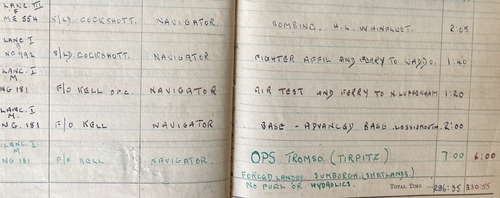 LANC. III
F
ME 554 S/LD. COCKSHOTT. NAVIGATOR. BOMBING. H.L. WAINFLEET. 2:05
LANC I
NG 492 S/LD. COCKSHOTT. NAVIGATOR FIGHTER AFFIL AND FERRY TO WADDO. 1:40
LANC. I
M
NG 181 F/O KELL D.F.C. NAVIGATOR AIR TEST AND FERRY TO N. LUFFENHAM 1:20
LANC. I
M.
NG. 181 F/O KELL NAVIGATOR BASE - ADVANCED BASE. LOSSIEMOUTH. 2:00
LANC. I
M
NG 181 F/O KELL NAVIGATOR. OPS TROMSO. (TIRPITZ) 7:00 6:00
FORCED LANDED SUMBURGH. (SHETLANDS.)
NO FUEL OR HYDROLICS.
TOTAL TIME